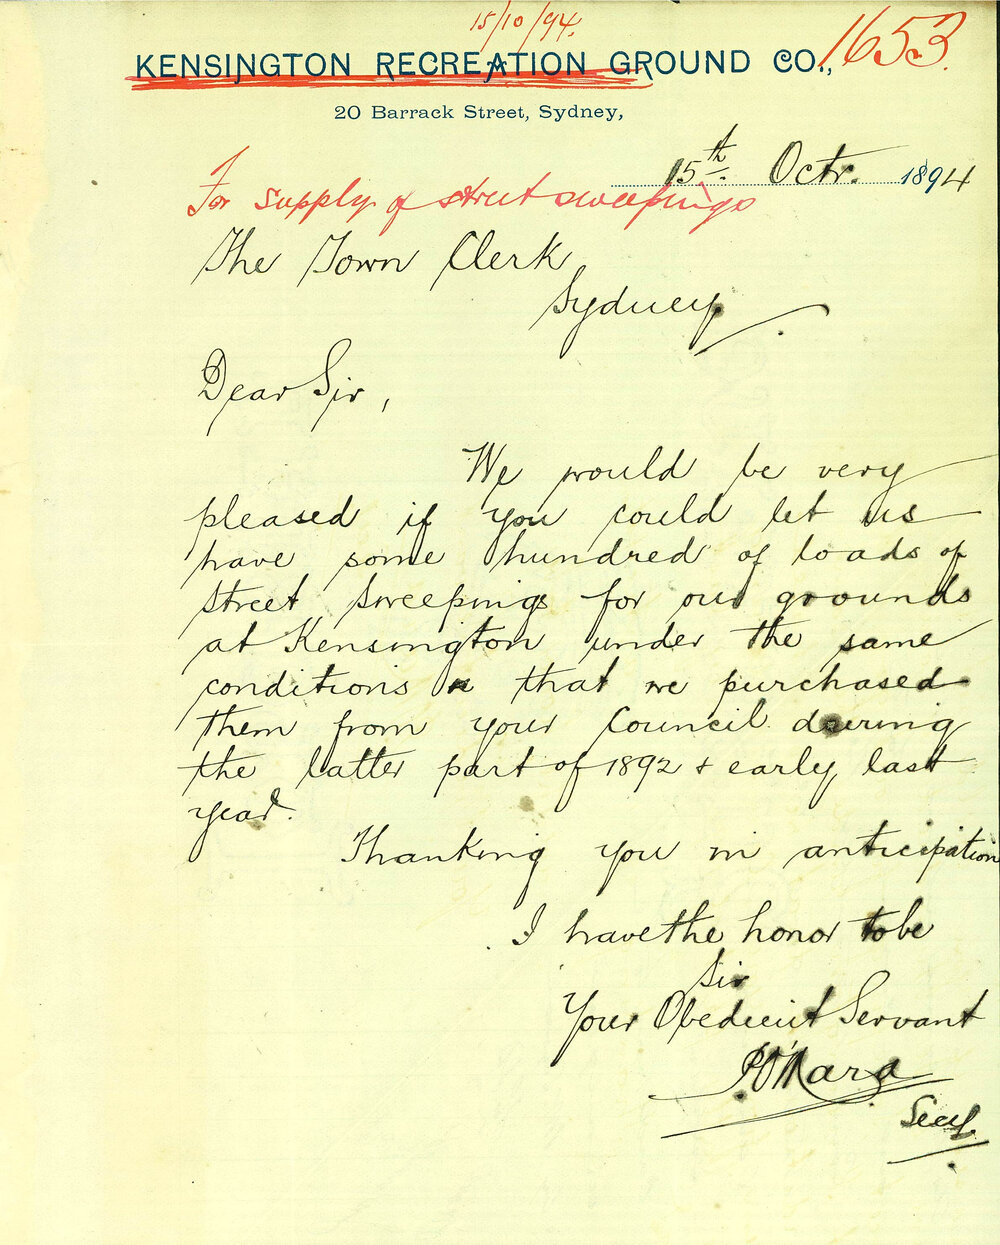 15/10/94.
1653.
KENSINGTON RECREATION GROUND CO.,
20 Barrack Street, Sydney,
15th. Octr. 1894
For supply of street sweepings
The Town Clerk
Sydney.
Dear Sir,
We would be very
pleased if you could let us
have some hundred of loads of
street sweepings for our grounds
at Kensington under the same
conditions that we purchased
them from your Council during
the latter part of 1892 & early last
year.
Thanking you in anticipation
I have the honor to be
Sir
Your Obedient Servant
P. O'Mara
Secy.